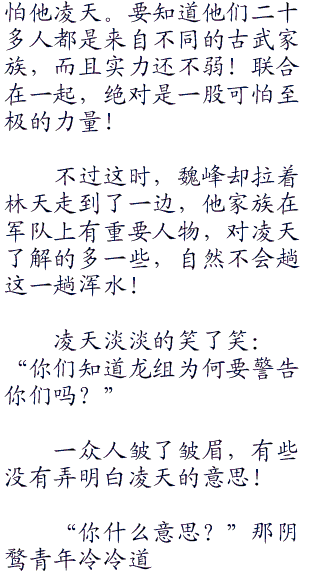 怕他凌天。要知道他们二十
多人都是来自不同的古武家
族，而且实力还不弱！联合
在一起，绝对是一股可怕至
极的力量！
不过这时，魏峰却拉着
林天走到了一边，他家族在
军队上有重要人物，对凌天
了解的多一些，自然不会趟
这一趟浑水！
凌天淡淡的笑了笑：
“你们知道龙组为何要警告
你们吗？”
一众人皱了皱眉，有些
没有弄明白凌天的意思！
“你什么意思？”那阴
鹜青年冷冷道